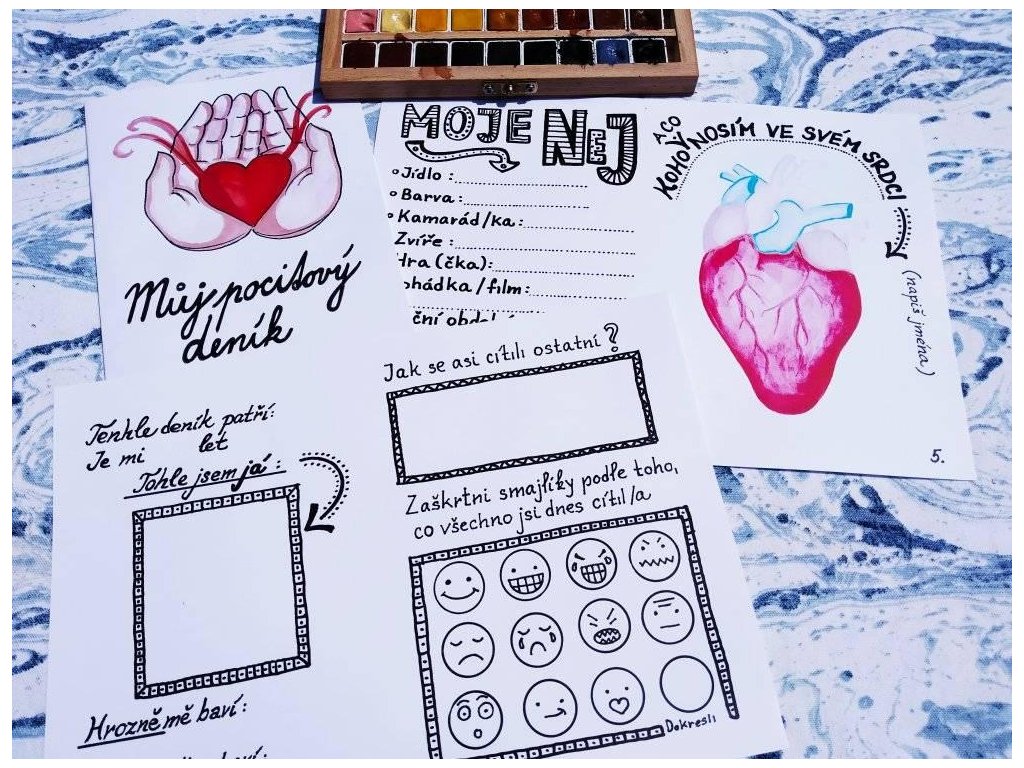 Můj pocitový
deník
MOJE NEJ
Jídlo :
Barva:
Kamarád/ka:
Zvíře :
Hra (čka):
ohádka / film:
KOHO A CO NOSÍM VE SVÉM SRDCI
(napiš jména)
5.
Tenhle deník patří:
Je mi let
Tohle jsem já :
Hrozně mě baví:
Jak se asi cítili ostatní ?
Zaškrtni smajlíky podle toho,
co všechno jsi dnes cítil/a
Dokresli